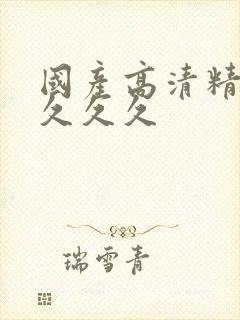 國產高清精
久久久
瑞雪青